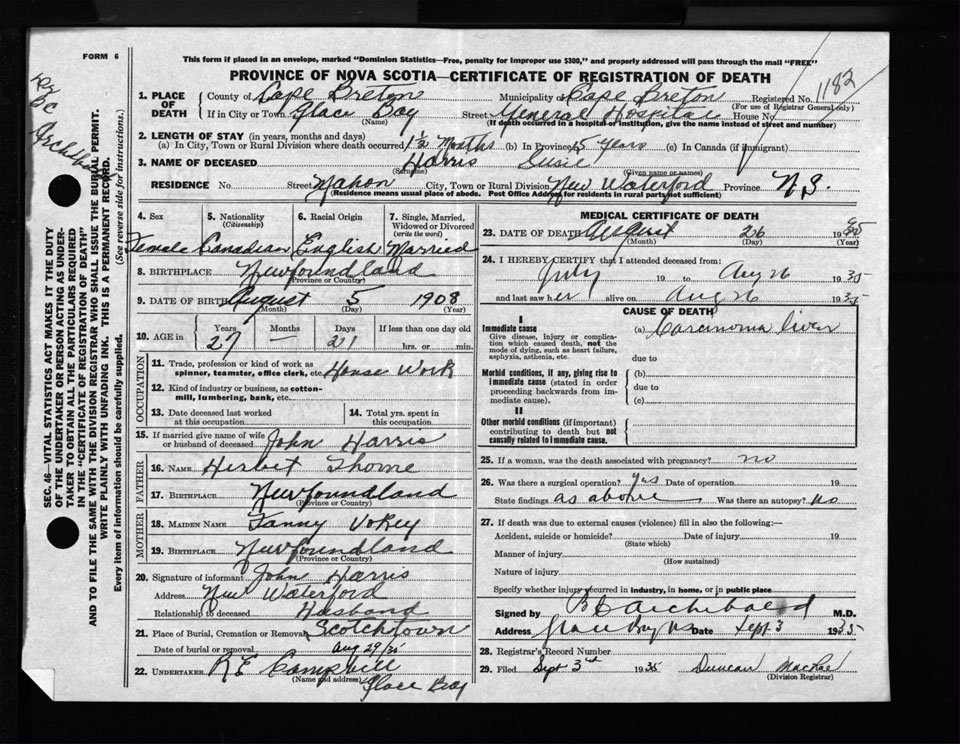 FORM 6
This form if placed in an envelope, marked "Dominion Statistics—Free, penalty for improper use $300," and properly addressed will pass through the mail "FREE"
PROVINCE OF NOVA SCOTIA—CERTIFICATE OF REGISTRATION OF DEATH
1182
1. PLACE OF DEATH
County of Cape Breton Municipality of Cape Breton Registered No.
(For use of Registrar General only)
If in City or Town Glace Bay Street General Hospital House No.
(Name) (If death occurred in a hospital or institution, give the name instead of street and number)
2. LENGTH OF STAY (in years, months and days)
(a) In City, Town or Rural Division where death occurred 1½ Months (b) In Province 15 years (c) In Canada (if immigrant)
3. NAME OF DECEASED Harris Susie
(Surname) (Given name or names)
RESIDENCE No. Street Mahon City, Town or Rural Division New Waterford Province N.S.
(Residence means usual place of abode. Post Office Address for residents in rural parts not sufficient)
4. Sex 5. Nationality (Citizenship) 6. Racial Origin 7. Single, Married, Widowed or Divorced (write the word)
Female Canadian English Married
8. BIRTHPLACE Newfoundland
(Province or Country)
9. DATE OF BIRTH August 5 1908
(Month) (Day) (Year)
10. AGE in Years Months Days If less than one day old
27 — 21 hrs. or min.
OCCUPATION
11. Trade, profession or kind of work as spinner, teamster, office clerk, etc. House Work
12. Kind of industry or business, as cotton-mill, lumbering, bank, etc.
13. Date deceased last worked at this occupation
14. Total yrs. spent in this occupation
15. If married give name of wife or husband of deceased John Harris
FATHER
16. NAME Herbert Thorne
17. BIRTHPLACE Newfoundland
(Province or Country)
MOTHER
18. MAIDEN NAME Fanny Vokey
19. BIRTHPLACE Newfoundland
(Province or Country)
20. Signature of informant John Harris
Address New Waterford
Relationship to deceased Husband
21. Place of Burial, Cremation or Removal Scotchtown
Date of burial or removal Aug 29/35
22. UNDERTAKER R E Campbell
(Name and address) Glace Bay
MEDICAL CERTIFICATE OF DEATH
23. DATE OF DEATH August 26 1935
(Month) (Day) (Year)
24. I HEREBY CERTIFY that I attended deceased from:
July 19 to Aug 26 1935
and last saw her alive on Aug 26 1935
CAUSE OF DEATH
I
Immediate cause (a) Carcinoma liver
Give disease, injury or complication which caused death, not the mode of dying, such as heart failure, asphyxia, asthenia, etc.
due to
Morbid conditions, if any, giving rise to immediate cause (stated in order proceeding backwards from immediate cause).
(b)
due to
(c)
II
Other morbid conditions (if important) contributing to death but not causally related to immediate cause.
25. If a woman, was the death associated with pregnancy? no
26. Was there a surgical operation? yes Date of operation 19
State findings as above Was there an autopsy? no
27. If death was due to external causes (violence) fill in also the following:—
Accident, suicide or homicide? Date of injury 19
(State which)
Manner of injury
(How sustained)
Nature of injury
Specify whether injury occurred in industry, in home, or in public place
Signed by B C Archibald M.D.
Address Glace Bay NS Date Sept 3 1935
28. Registrar's Record Number
29. Filed Sept 3rd 1935 Duncan MacRae
(Division Registrar)
SEC. 46—VITAL STATISTICS ACT MAKES IT THE DUTY
OF THE UNDERTAKER OR PERSON ACTING AS UNDER-
TAKER TO OBTAIN ALL THE PARTICULARS REQUIRED
IN THE "CERTIFICATE OF REGISTRATION OF DEATH"
AND TO FILE THE SAME WITH THE DIVISION REGISTRAR WHO SHALL ISSUE THE BURIAL PERMIT.
WRITE PLAINLY WITH UNFADING INK. THIS IS A PERMANENT RECORD.
Every item of information should be carefully supplied. (See reverse side for instructions.)